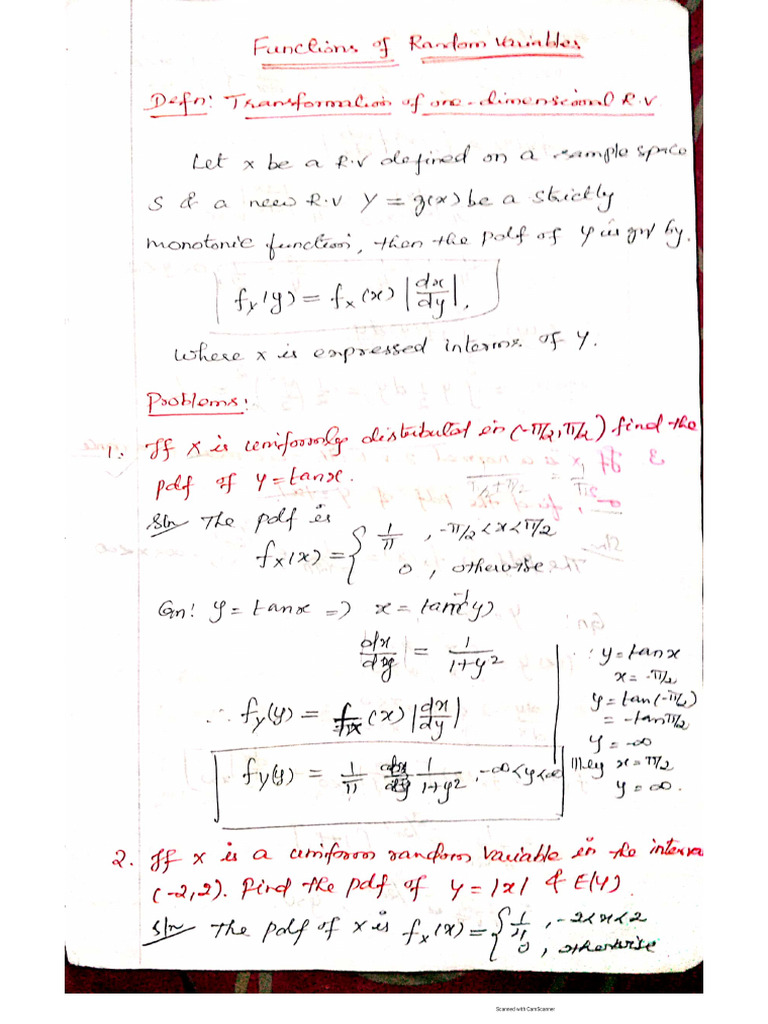 Functions of Random Variables
Defn: Transformation of one-dimensional R.V
Let x be a R.V defined on a sample space
S & a new R.V Y = g(x) be a strictly
monotonic function, then the pdf of Y is gn by.
f_Y(y) = f_X(x) |dx/dy|.
Where x is expressed interms of y.
Problems:
1. If X is uniformly distributed in (-π/2, π/2) find the
pdf of y = tanx.
Sln The pdf is
f_X(x) = { 1/π , -π/2 < x < π/2
0 , otherwise
Gn: y = tanx => x = tan⁻¹(y)
|dx/dy| = 1/(1+y²)
∴ y = tanx
x = -π/2
y = tan(-π/2)
= -tan π/2
y = -∞
∴ f_Y(y) = f_X(x) |dx/dy|
f_Y(y) = 1/π 1/(1+y²) , -∞ < y < ∞
||ly x = π/2
y = ∞.
2. If X is a uniform random variable in the interva
(-2,2). Find the pdf of Y = |x| & E(Y).
Sln The pdf of X is f_X(x) = { , -2 < x < 2
0 , otherwise
Scanned with CamScanner